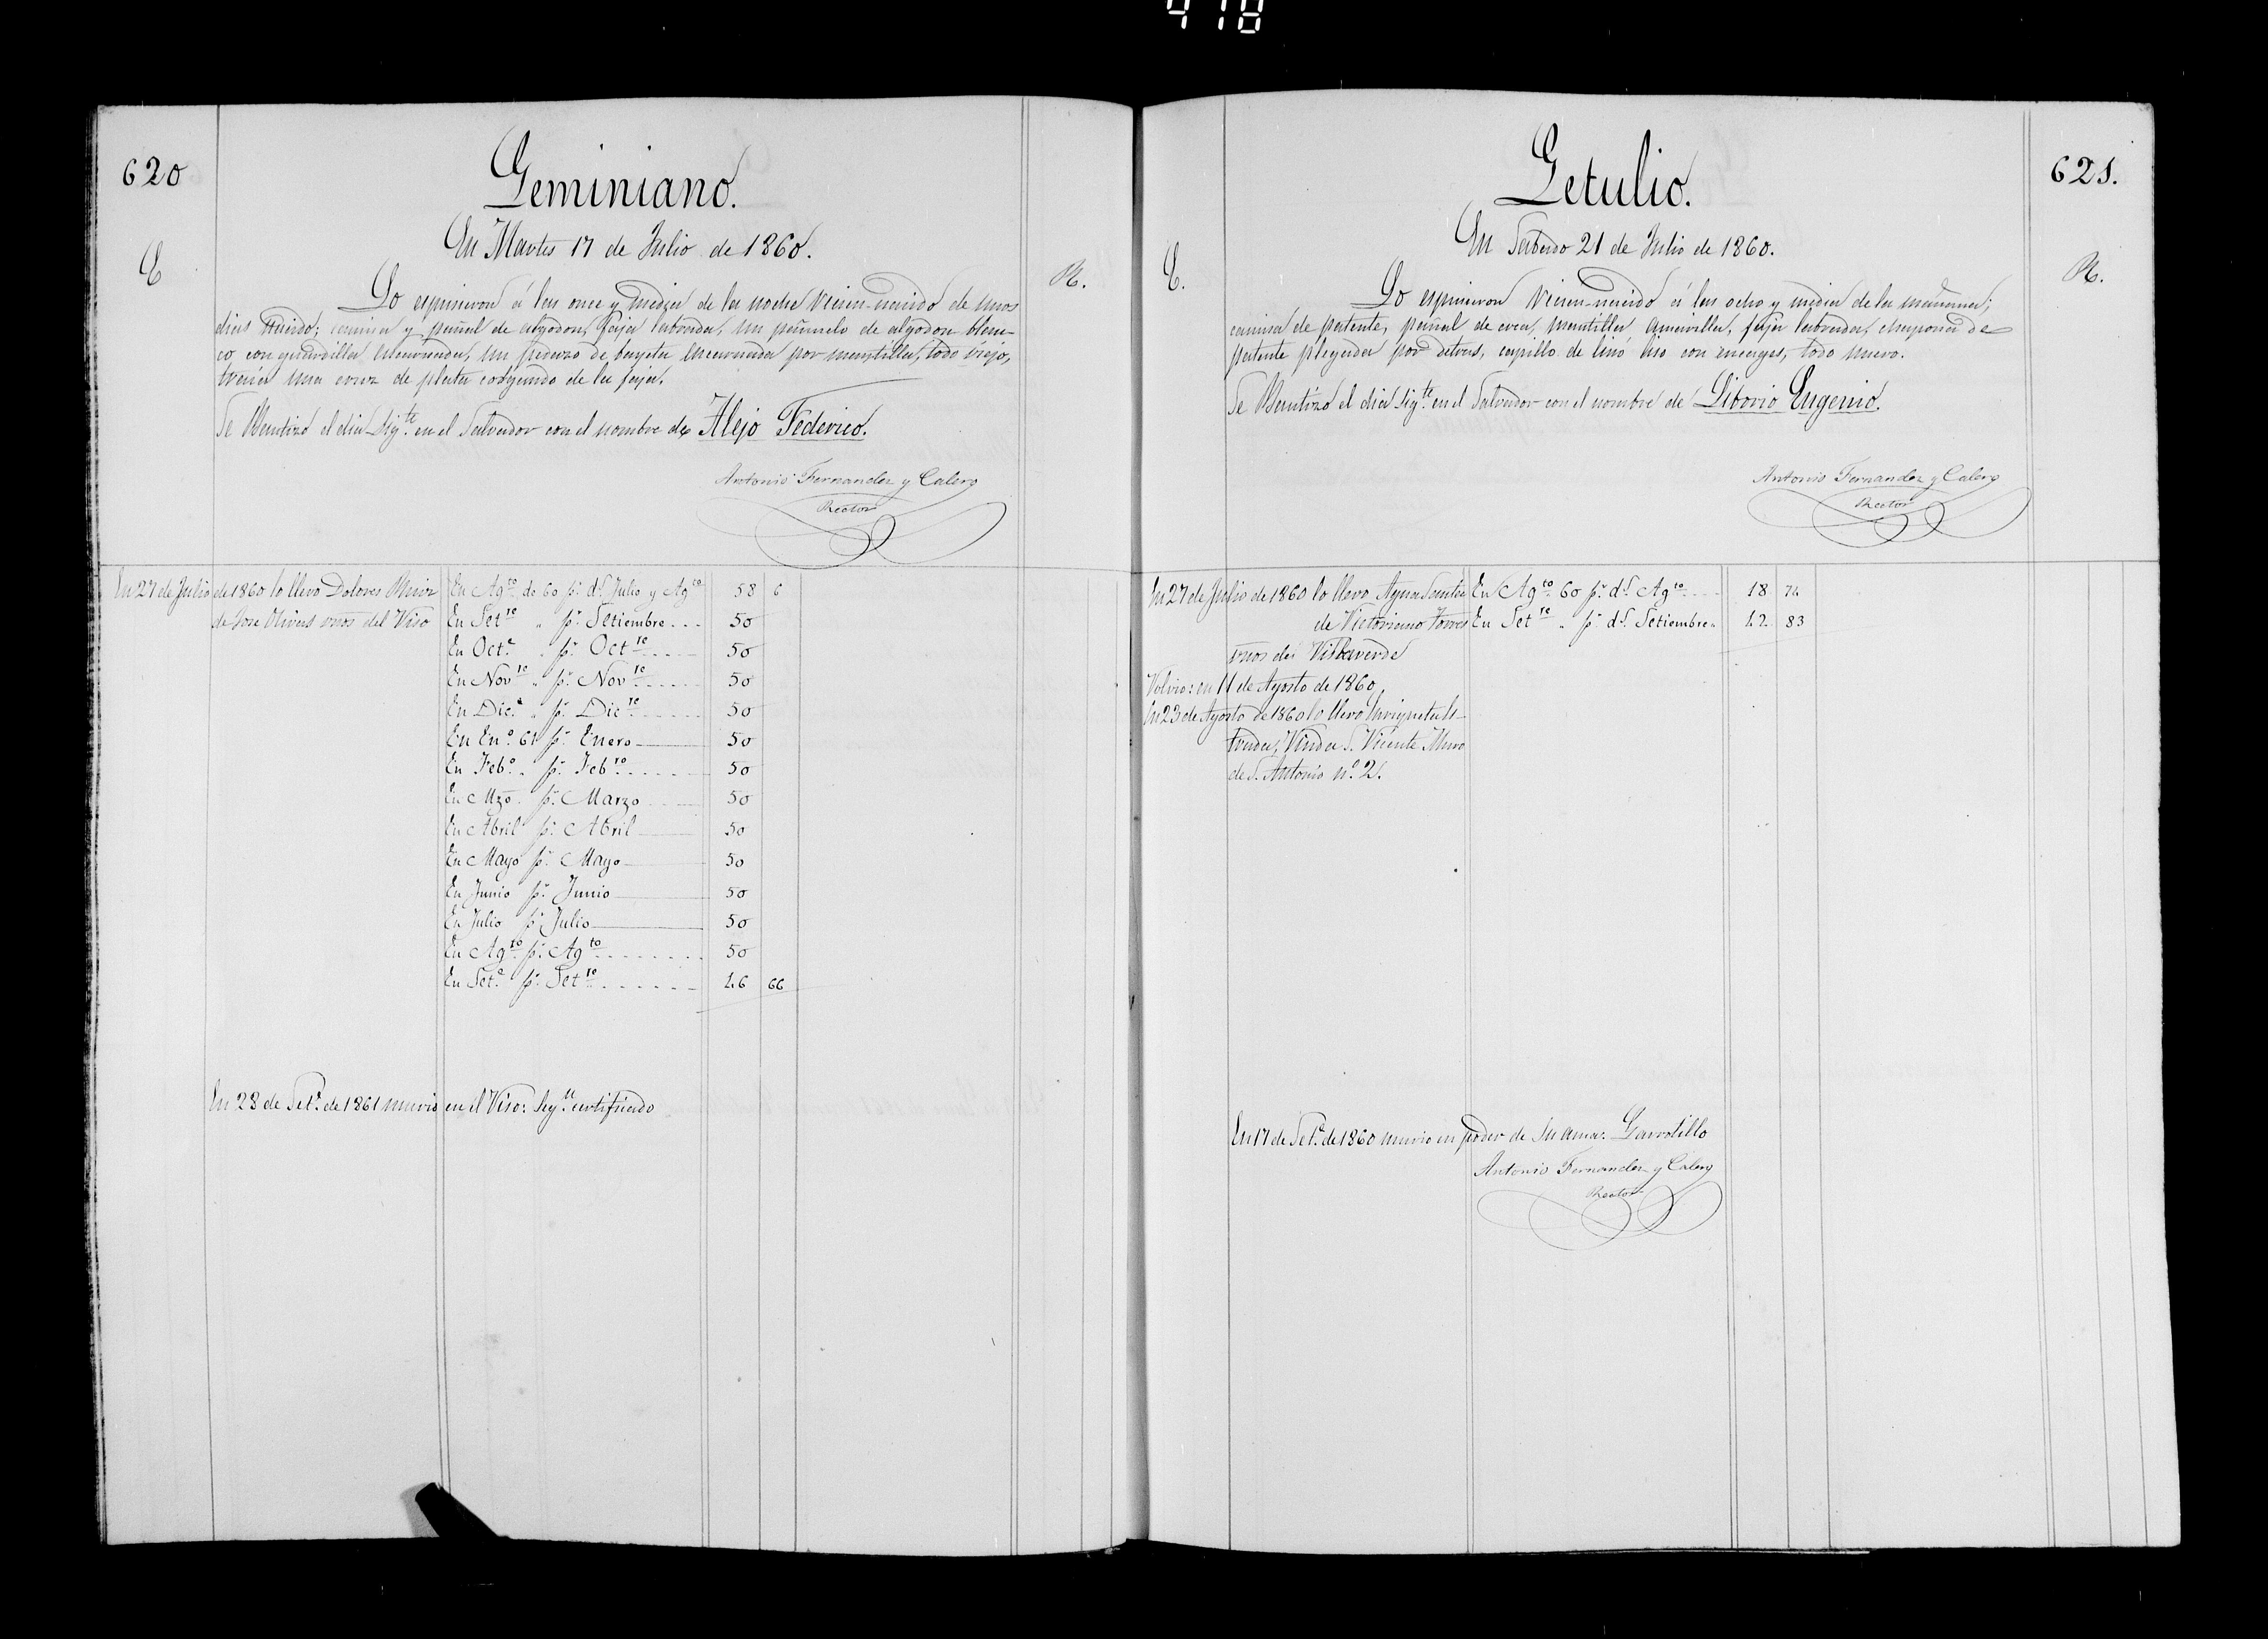 418
620
Geminiano.
En Martes 17 de Julio de 1860.
E
R.
Lo espusieron á las once y media de la noche recien-nacido de unos
dias nacido; camisa y pañal de algodon, faja labrada, un pañuelo de algodon blan-
co con guardilla encarnada, un pedazo de bayeta encarnada por mantilla, todo viejo,
traia una cruz de plata colgando de la faja.
Se Bautizó el dia Sigte. en el Salvador con el nombre de Alejo Federico.
Antonio Fernandez y Calero
Rector
En 27 de Julio de 1860 lo llevo Dolores
de Jose Olivas vnos del Viso
En Agto. de 60 pr. ds. Julio y Agto 58 6
En Setre " pr. Setiembre . . . 50
En Octe. " pr. Octre. . . . . 50
En Novre " pr. Novre. . . . . . 50
En Dice. " pr. Dicre. . . . . . 50
En Eno. 61 pr. Enero 50
En Febo. " pr. Febro. . . . . . . 50
En Mzo. pr. Marzo 50
En Abril pr. Abril 50
En Mayo pr. Mayo 50
En Junio pr. Junio 50
En Julio pr. Julio 50
En Agto. pr. Agto. . . . . . . . 50
En Sete. pr. Setre. . . . . . . 46 66
En 28 de Sete. de 1861 murió en el Viso: Segun certificado
621.
Getulio.
En Sabado 21 de Julio de 1860.
E.
R.
Lo espusieron recien-nacido á las ocho y media de la mañana;
camisa de patente, pañal de crea, mantilla amarilla, faja labrada, chapona de
patente plegada por detras, capillo de linó liso con encages, todo nuevo.
Se Bautizó el dia Sigte. en el Salvador con el nombre de Liborio Eugenio.
Antonio Fernandez y Calero
Rector
En 27 de Julio de 1860 lo llevo
de Victoriano Torres
vnos de Villaverde
Volvio: en 11 de Agosto de 1860
En 23 de Agosto de 1860 lo llevo Enriqueta Es-
trada, Viuda S. Vicente Muro
de S. Antonio no. 2.
En Agto. 60 pr. ds. Agto. 18 74
En Setre " pr. ds. Setiembre " 42 83
En 17 de Sete. de 1860 murio en poder de Su ama: Garrotillo
Antonio Fernandez y Calero
Rector